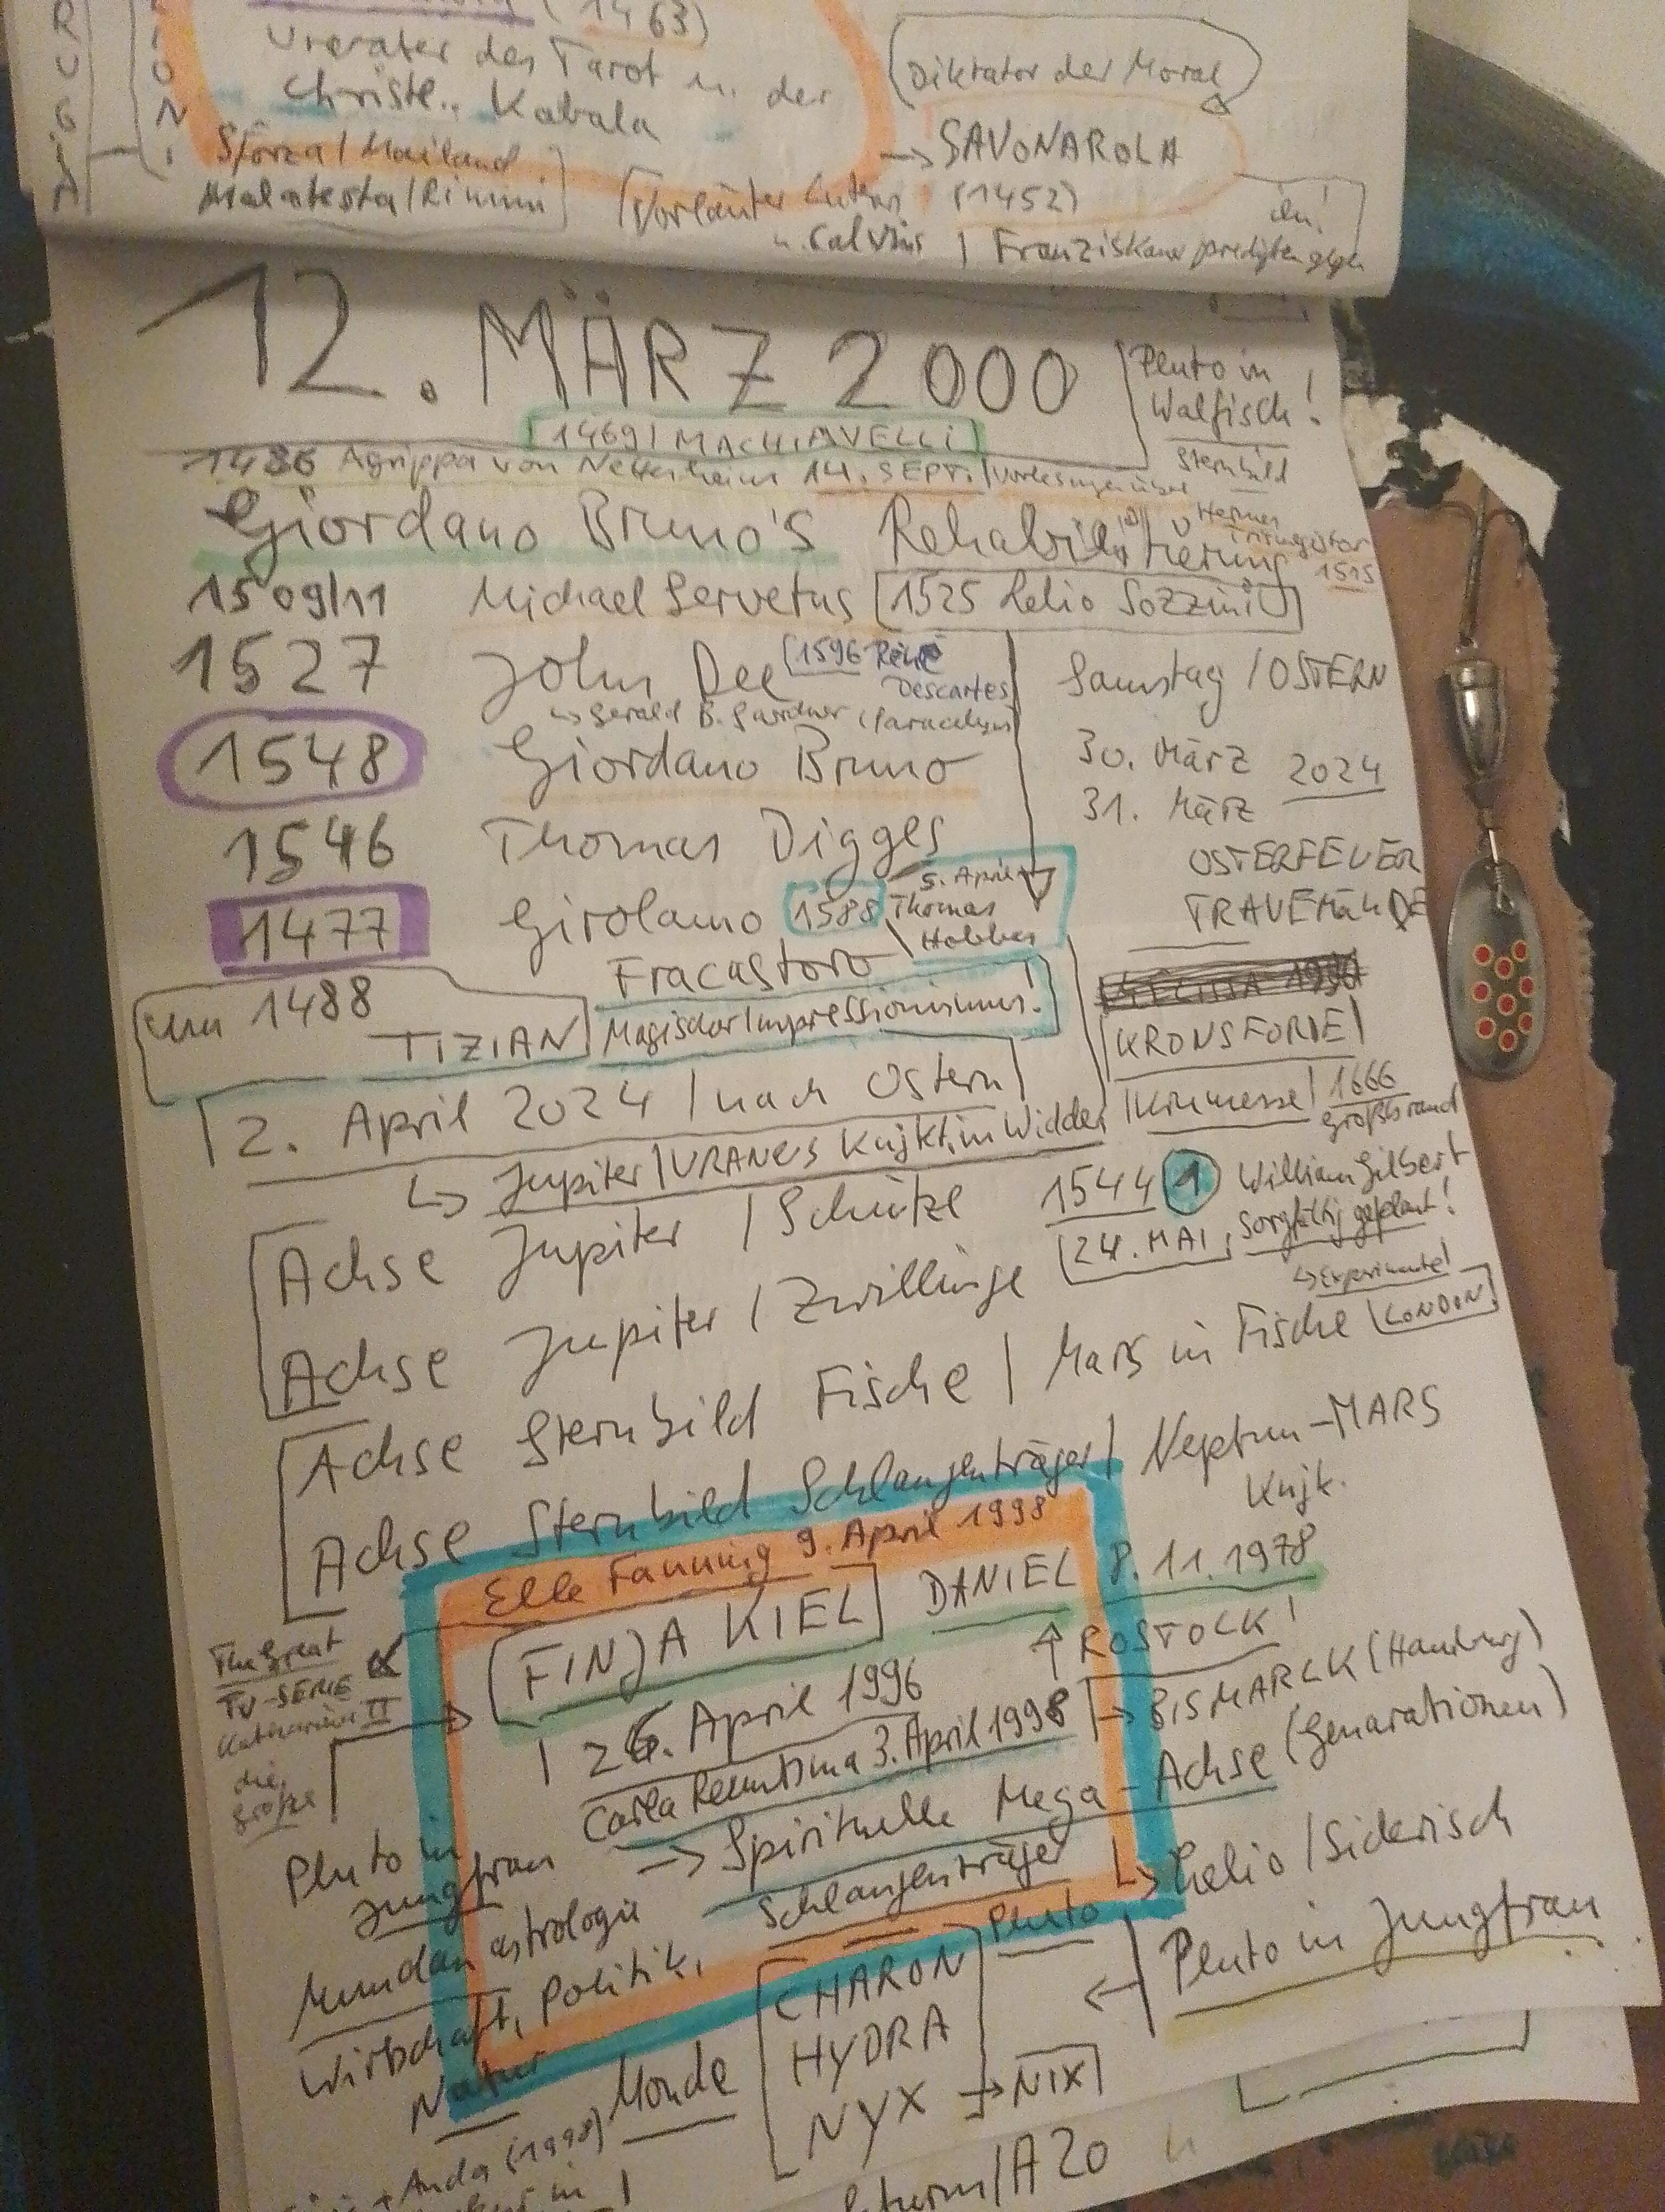 RUGIA
IONI
(1463)
Urvater des Tarot u. der
Christl. Kabala
Sforza / Mailand
Malatesta / Rimini
(Diktator der Moral)
→ SAVONAROLA
(1452)
[Vorläufer Luthers
u. Calvins | Franziskaner predigten gegen
ihn!
12. MÄRZ 2000
Pluto in
Walfisch!
Sternbild
[1469 | MACHIAVELLI]
1486 Agrippa von Nettesheim 14. SEPT. | Vorlesungen über
Hermes
Trismegistos
1515
Giordano Bruno's Rehabilitierung
1509/11 Michael Servetus [1525 Lelio Sozzini]
1527 John Dee [1596 René
Descartes
↳ Gerald B. Gardner (Paracelsus)
1548 Giordano Bruno
1546 Thomas Digges
1477 Girolamo
Fracastoro
1588 5. April
Thomas
Hobbes
um 1488
TIZIAN
Magischer Impressionismus!
Samstag / OSTERN
30. März 2024
31. März
OSTERFEUER
TRAVEMÜNDE
KRONSFORDE
1666
Großbrand
2. April 2024 / nach Ostern
↳ Jupiter / URANUS Knjkt. in Widder
Achse Jupiter / Schütze
1544 (1) William Gilbert
24. MAI, sorgfältig geplant!
↳ Experimente!
LONDON
Achse Jupiter / Zwillinge
Achse Sternbild Fische / Mars in Fische
Achse Sternbild Schlangenträger / Neptun-MARS
Knjk.
Elle Fanning 9. April 1998
[FINJA KIEL] DANIEL 8.11.1978
↑ ROSTOCK!
The Great
TV-SERIE
Katharina II
die
Große
26. April 1996
Carla Reemtsma 3. April 1998
→ BISMARCK (Hamburg)
→ Spirituelle Mega-Achse (Genarationen)
Schlangenträger
Pluto in
Jungfrau
↳ Helio / Siderisch
Mundanastrologie
Wirtschaft, Politik,
Natur
Pluto
← Pluto in Jungfrau
Monde
CHARON
HYDRA
NYX → NIX
(1998)